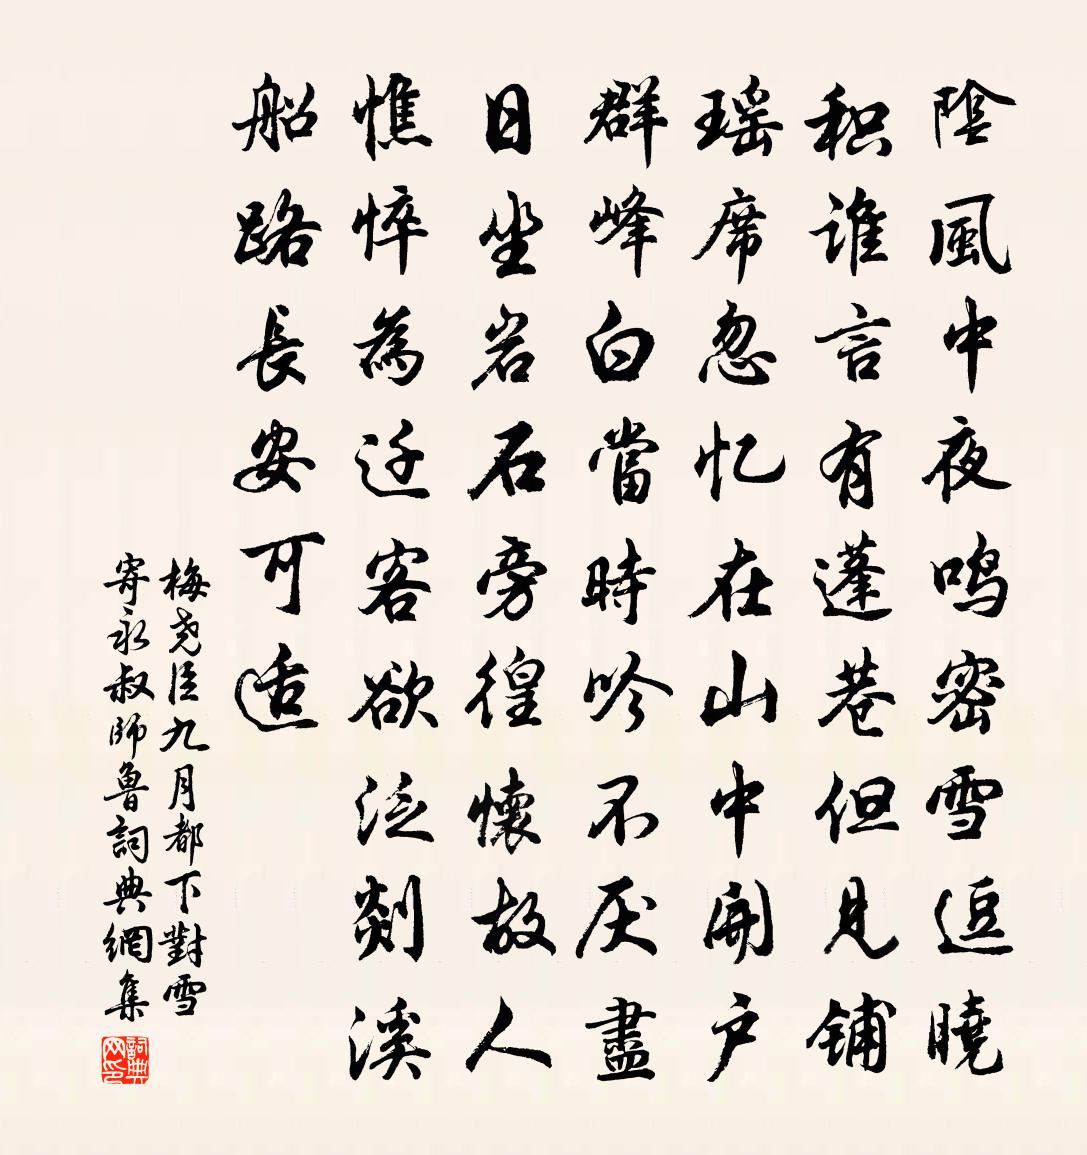 陰風中夜鸣密雪逗曉
积谁言有蓬巷但見铺
瑶席忽忆在山中開户
群峰白當時吟不厌盡
日坐岩石旁徨懷故人
憔悴為迁客欲泛剡溪
船路長安可适
梅尧臣九月都下對雪
寄永叔師魯詞典網集
詞典网印